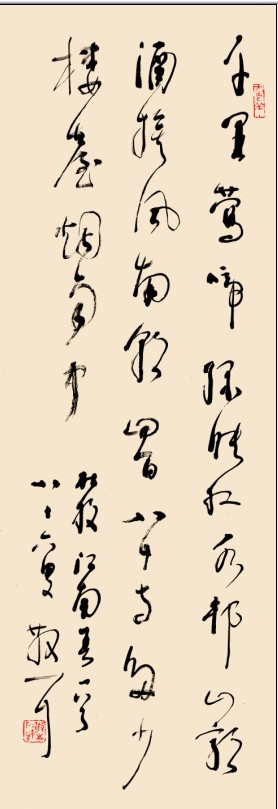 千里鶯啼绿映红水邨山郭
酒旗风南朝四百八十寺多少
楼臺烟雨中
杜牧江南春一首
八十六叟